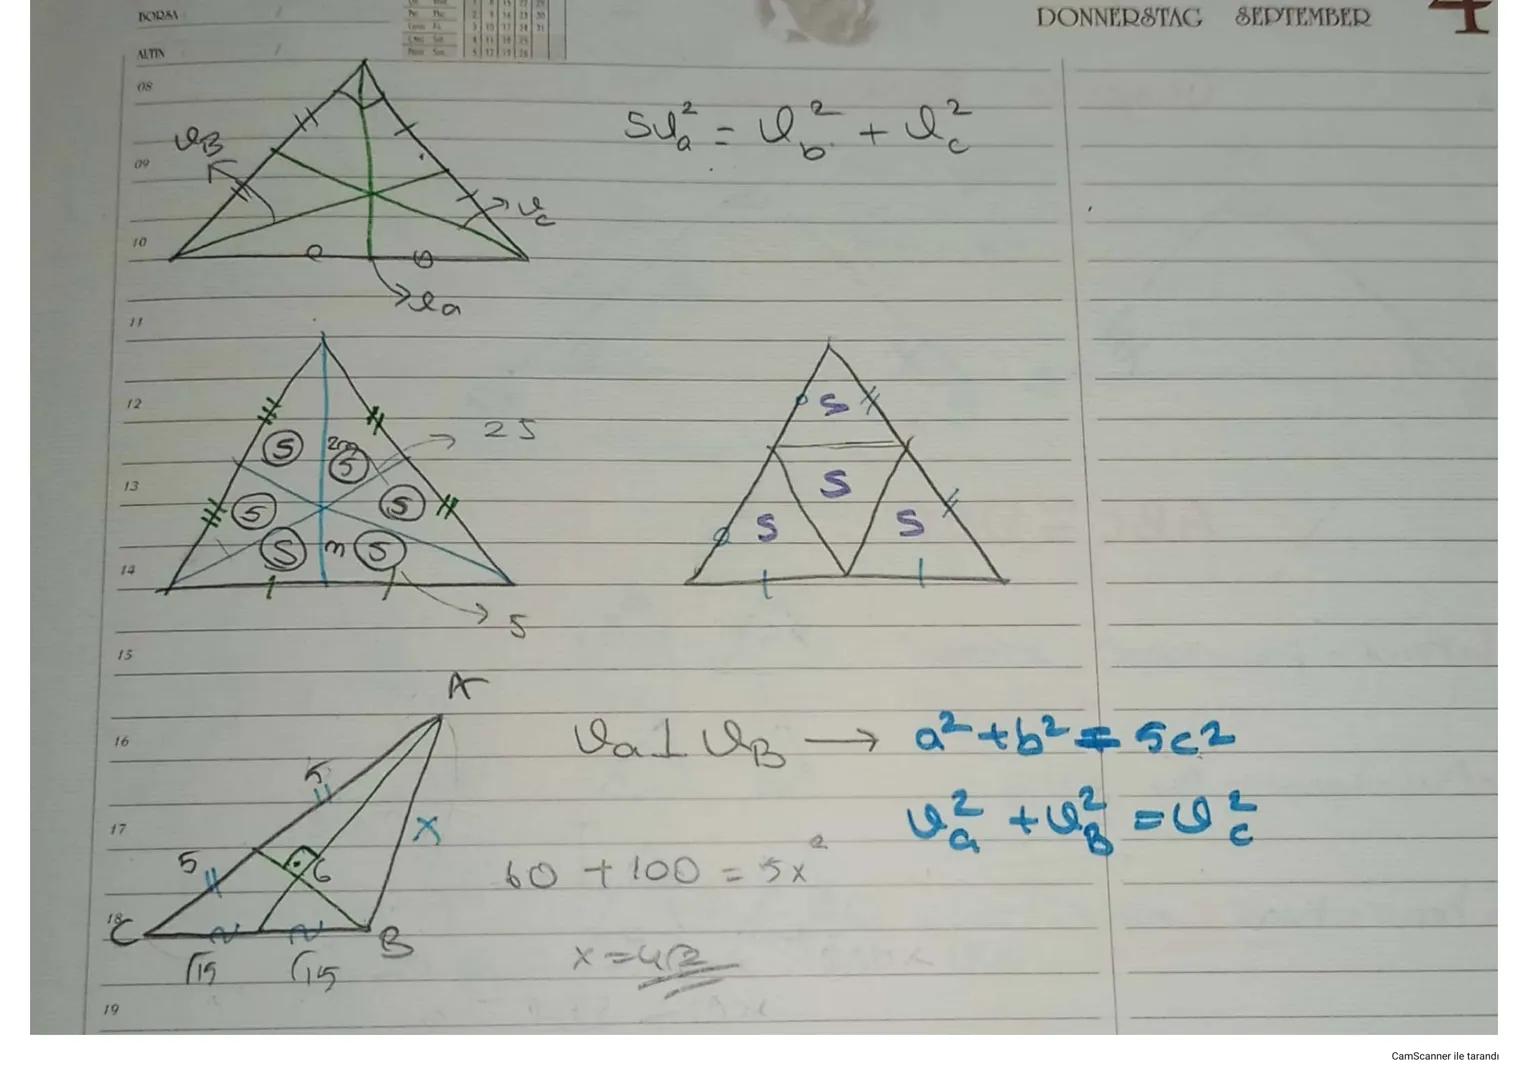 BORSA
ALTIN
DONNERSTAG SEPTEMBER 4
08
09
10
11
12
13
14
15
16
17
18
19
VB
Vc
Va
5Va² = Vb² + Vc²
S
2m
S
2S
S
S
S
m
S
S
S
S
S
S
A
5
5
6
x
C
B
√15
√15
Va ⊥ VB → a² + b² = 5c²
Va² + VB² = Vc²
60 + 100 = 5x²
x = 4√2
CamScanner ile tarandı